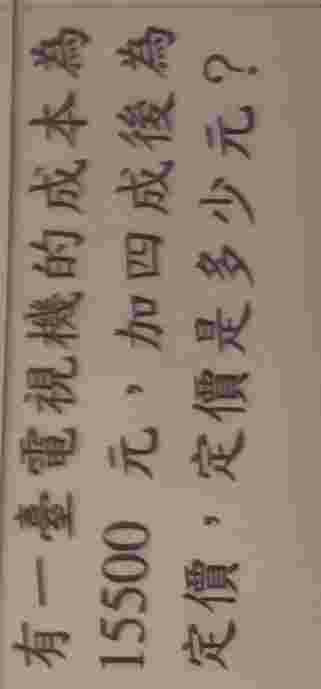 有一臺電視機的成本為
15500 元，加四成後為
定價，定價是多少元？